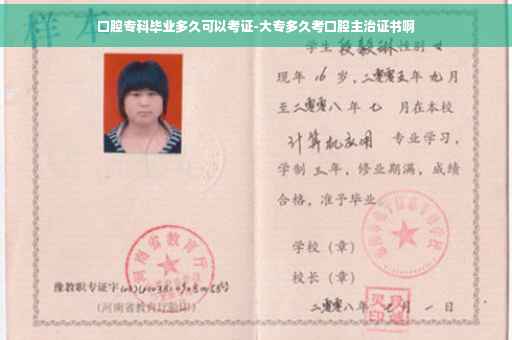 口腔专科毕业多久可以考证-大专多久考口腔主治证书啊
样本
学生段毅琳性别女
现年16岁，二零零五年九月
至二零零八年七月在本校
计算机应用 专业学习，
学制三年，修业期满，成绩
合格，准予毕业。
学校（章）
校长（章）
二零零八年 月一日
河南省教育厅
豫教职专证字
（河南省教育厅验印）